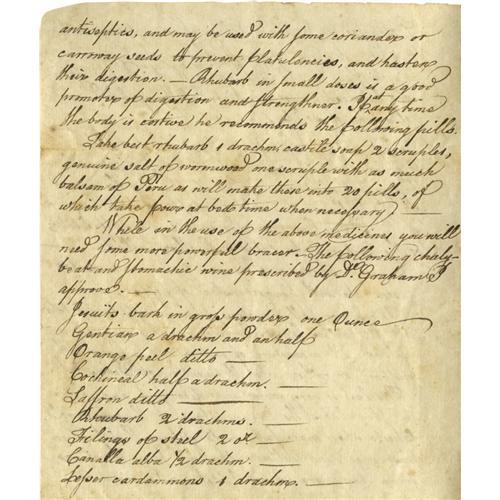 antiseptics, and may be used with some coriander or
carrway seeds to prevent flatulencies, and hasten
their digestion. — Rhubarb in small doses is a good
promoter of digestion and strengthner. If at any time
the body is costive he recommends the following pills.
Take best rhubarb 1 drachm castile soap 2 scruples,
genuine salt of wormwood one scruple with as much
balsam of Peru as will make these into 20 pills, of
which take four at bed time when necessary —
While in the use of the above medicenes you will
need some more powerful bracer. The following chaly-
beat and stomachic wine prescribed by Dr. Graham I
approve. —
Jesuits bark in gross powder one Ounce
Gentian a drachm and an half
Orange peel ditto —
Cochineal half a drachm. —
Saffron ditto —
Rhubarb 2 drachms. —
Filings of steel 2 oz —
Canalla alba 1/2 drachm. —
Lesser cardammons 1 drachm. —